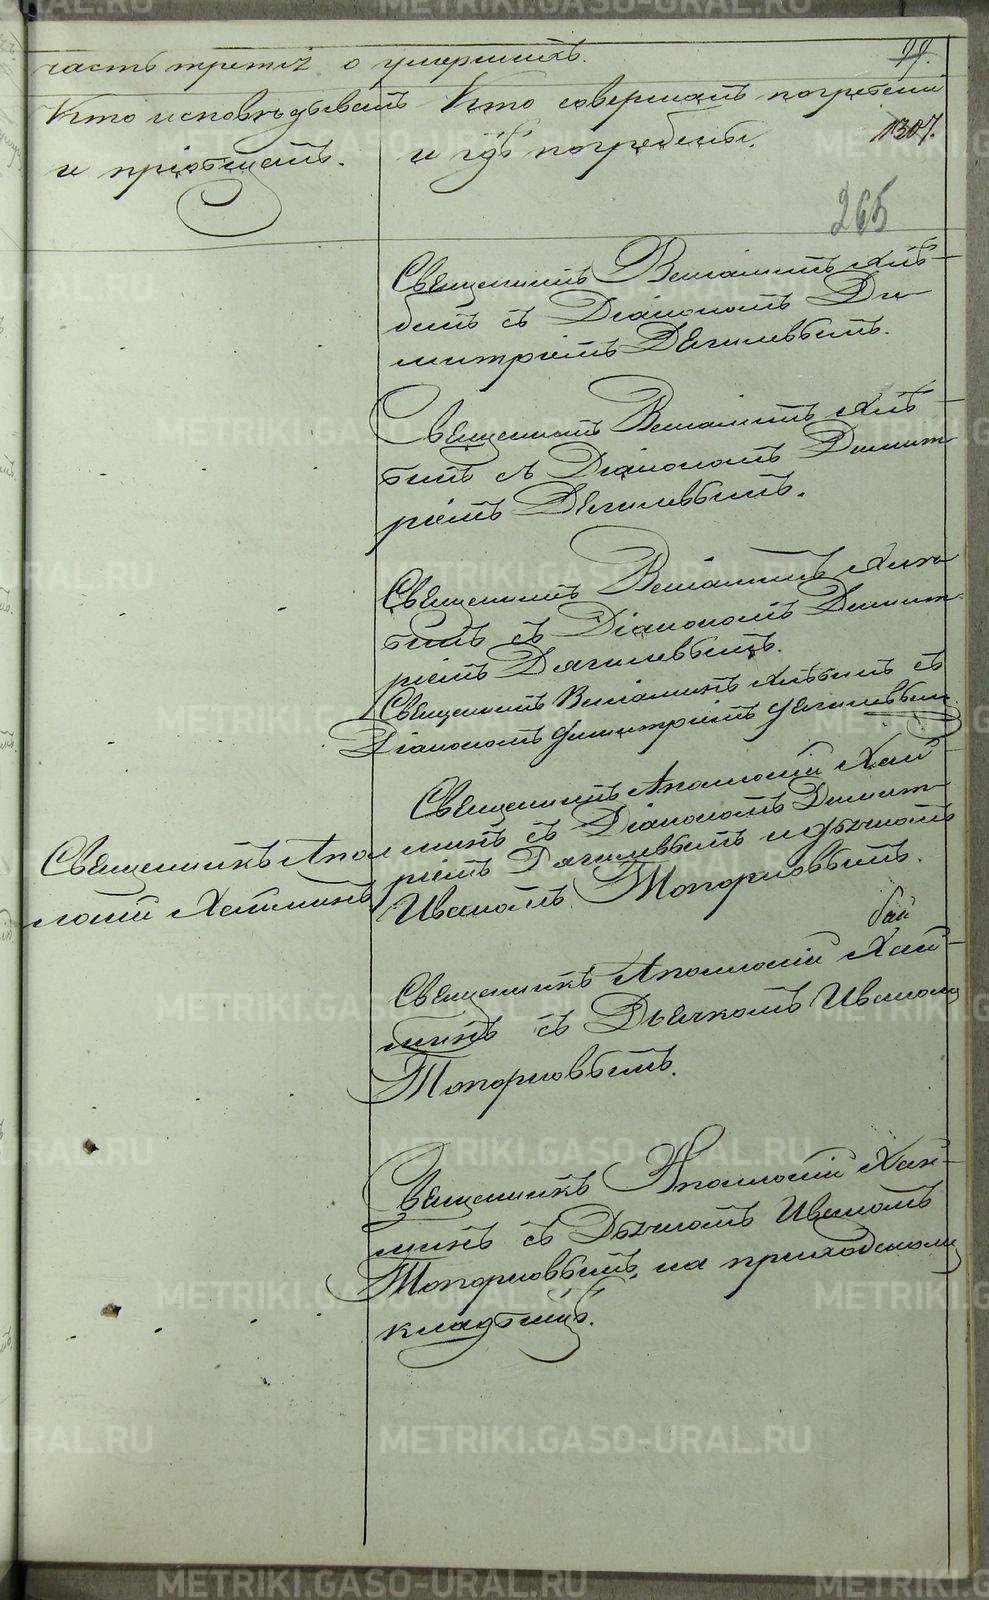 часть третія о умершихъ.
99.
Кто исповѣдывалъ
и пріобщалъ.
Кто совершалъ погребенія
и гдѣ погребены.
1307.
265
Священникъ Веніаминъ Хлѣ-
бинъ съ Діакономъ Ди-
митріемъ Дягилевымъ.
Священникъ Веніаминъ Хлѣ-
бинъ съ Діакономъ Димит-
ріемъ Дягилевымъ.
Священникъ Веніаминъ Хлѣ-
бинъ съ Діакономъ Димит-
ріемъ Дягилевымъ.
Священникъ Веніаминъ Хлѣбинъ съ
Діакономъ Димитріемъ Дягилевым
Священникъ Аполлоній Хай-
минъ съ Діакономъ Димит-
ріемъ Дягилевымъ и дьячкомъ
Иваномъ Топорковымъ.
Священникъ Апол
лоній Хайминъ
Священникъ Аполлоній Хай-
минъ съ Дьячкомъ Иваномъ
Топорковымъ.
Священникъ Аполлоній Хай-
минъ съ Дьячкомъ Иваномъ
Топорковымъ, на приходскомъ
кладбищѣ.
METRIKI.GASO-URAL.RU